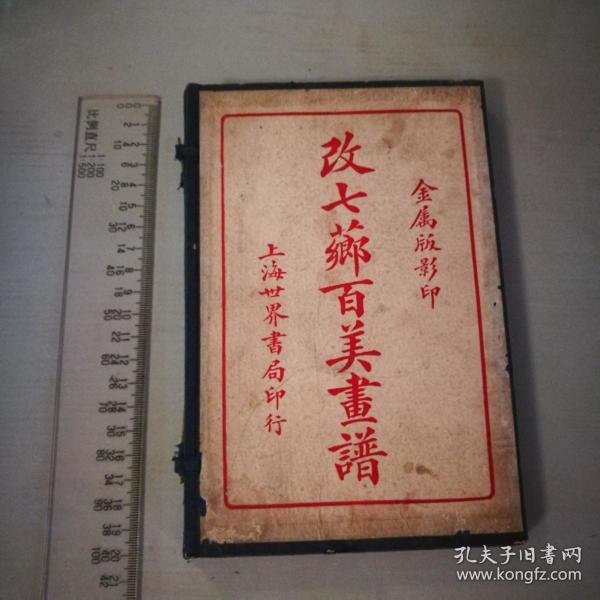 金属版影印
改七薌百美畫譜
上海世界書局印行
比例直尺
1:100
1:200
1:500
孔夫子旧書网
www.kongfz.com